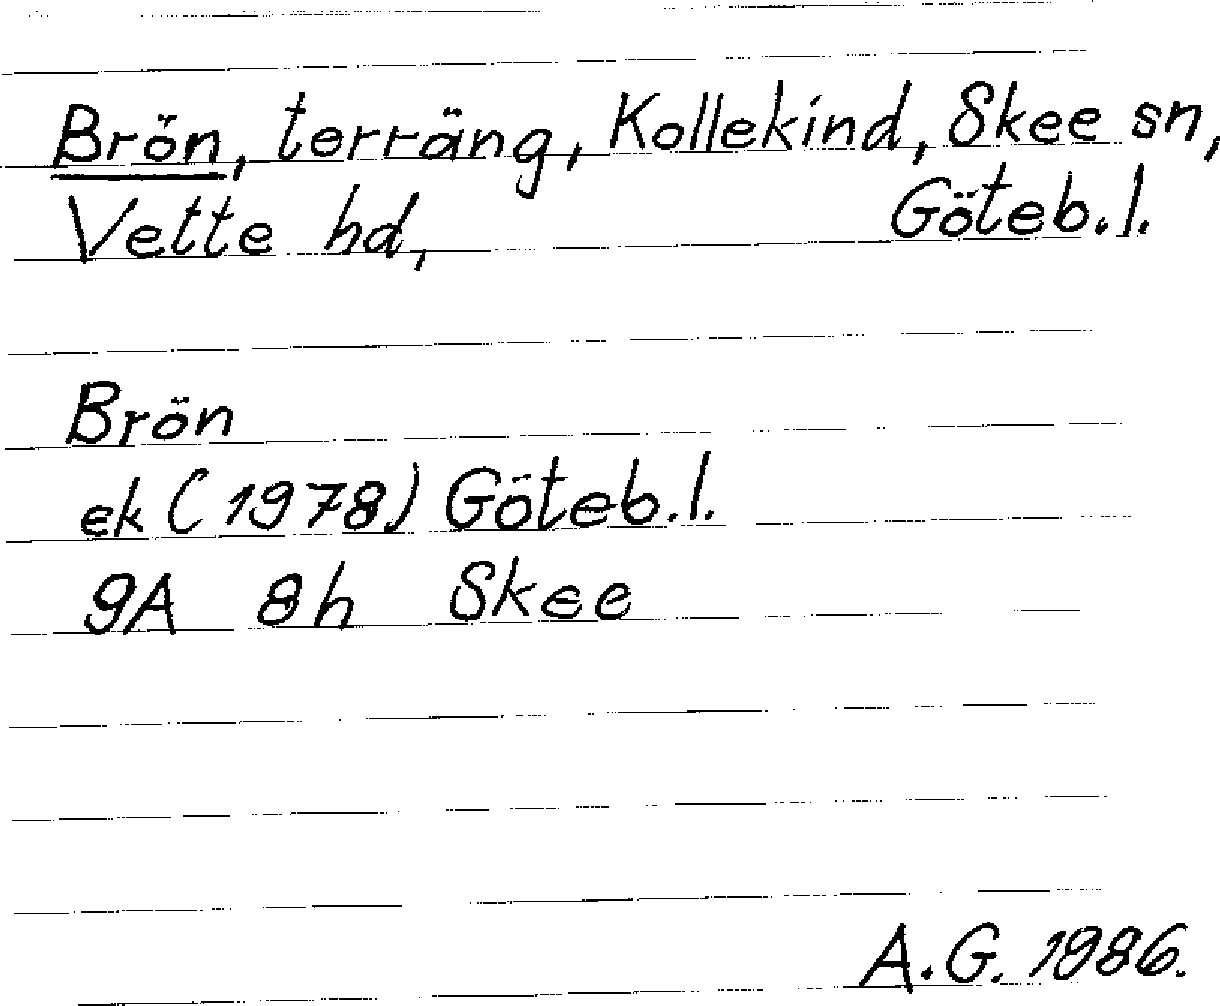 Brön, terräng, Kollekind, Skee sn,
Vette hd, Göteb. l.
Brön
ek (1978) Göteb. l.
9A 8h Skee
A.G. 1986.